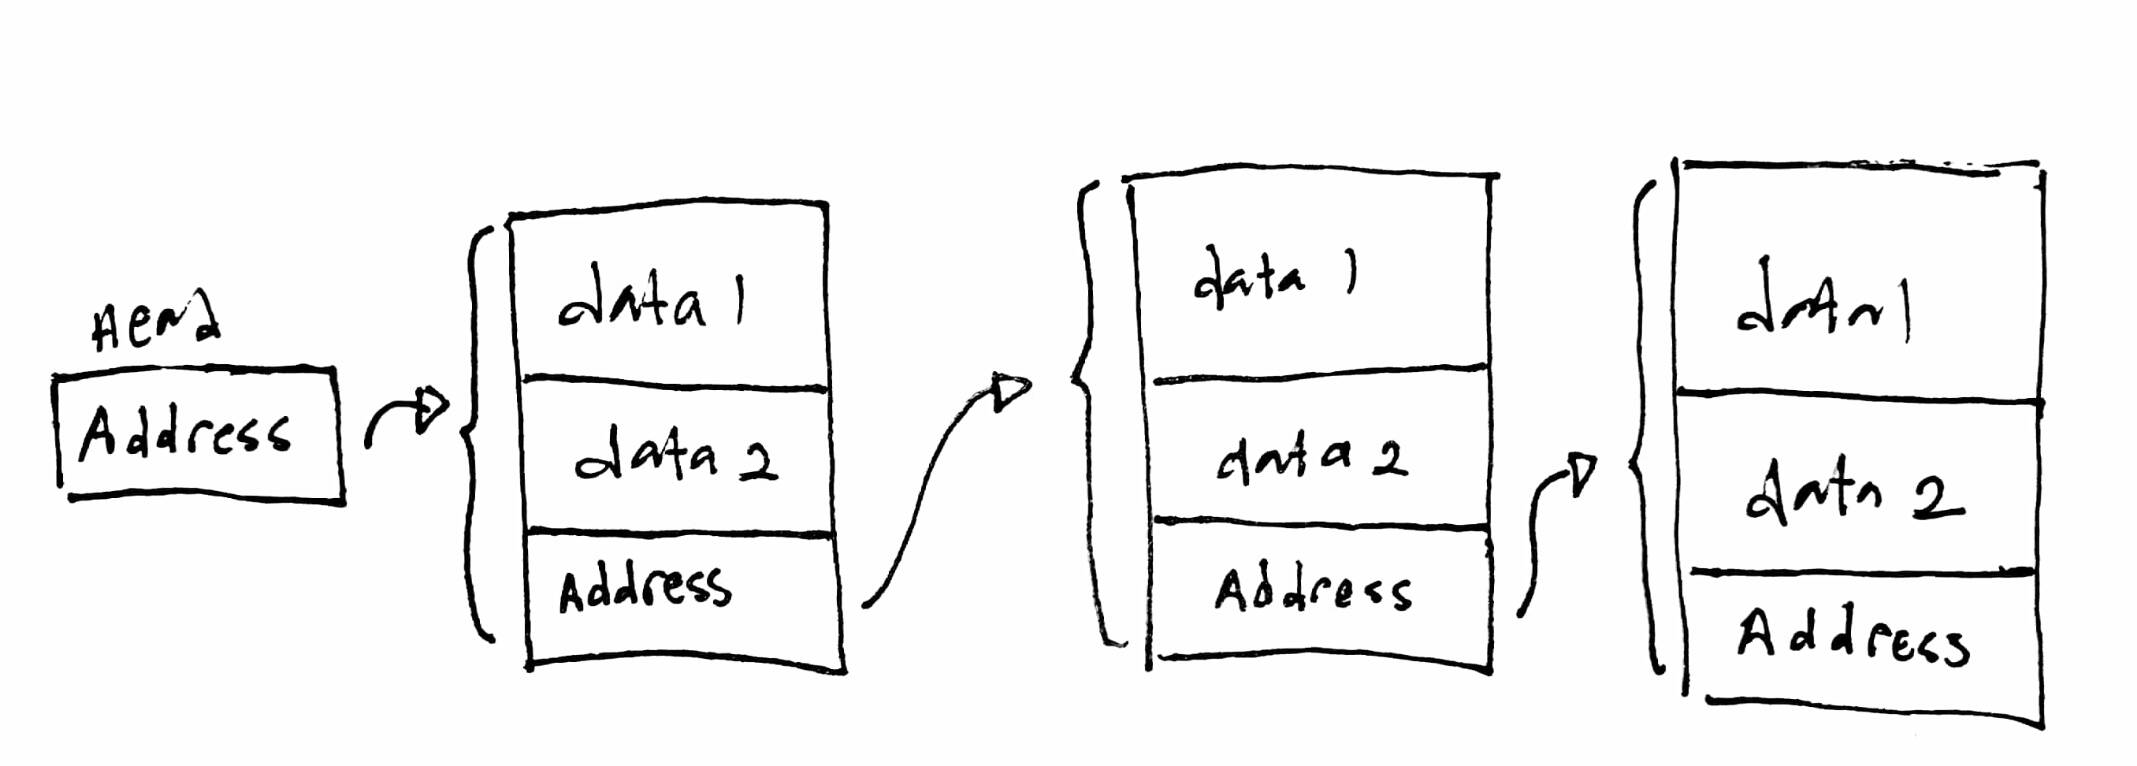 Head
Address
data 1
data 2
Address
data 1
data 2
Address
data 1
data 2
Address